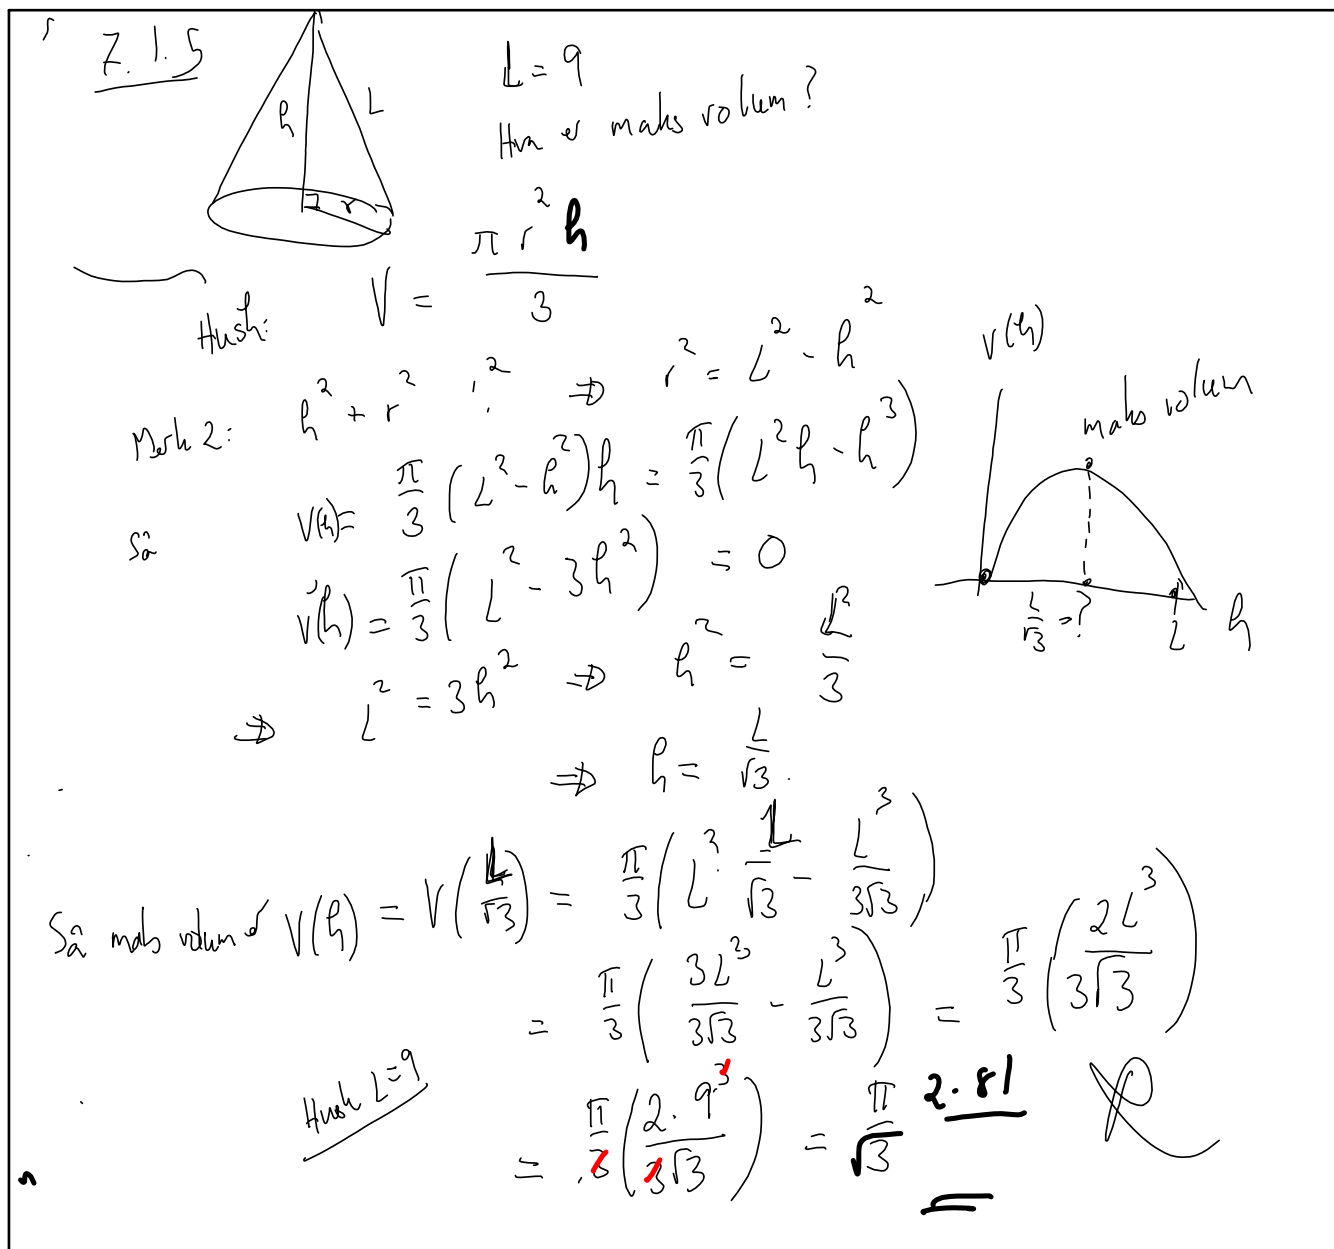 7.1.5
h L r
L = 9
Hva er maks volum?
Husk: V = π r² h / 3
Merk 2: h² + r² = L² ⇒ r² = L² - h²
Så V(h) = π/3 (L² - h²)h = π/3 (L²h - h³)
V'(h) = π/3 (L² - 3h²) = 0
⇒ L² = 3h² ⇒ h² = L²/3
⇒ h = L/√3.
V(h)
maks volum
L/√3 = ? L h
Så maks volum er V(h) = V(L/√3) = π/3 (L² · L/√3 - L³/3√3)
= π/3 (3L³/3√3 - L³/3√3) = π/3 (2L³/3√3)
Husk L=9
= π/3 (2·9³/3√3) = π/√3 2·81